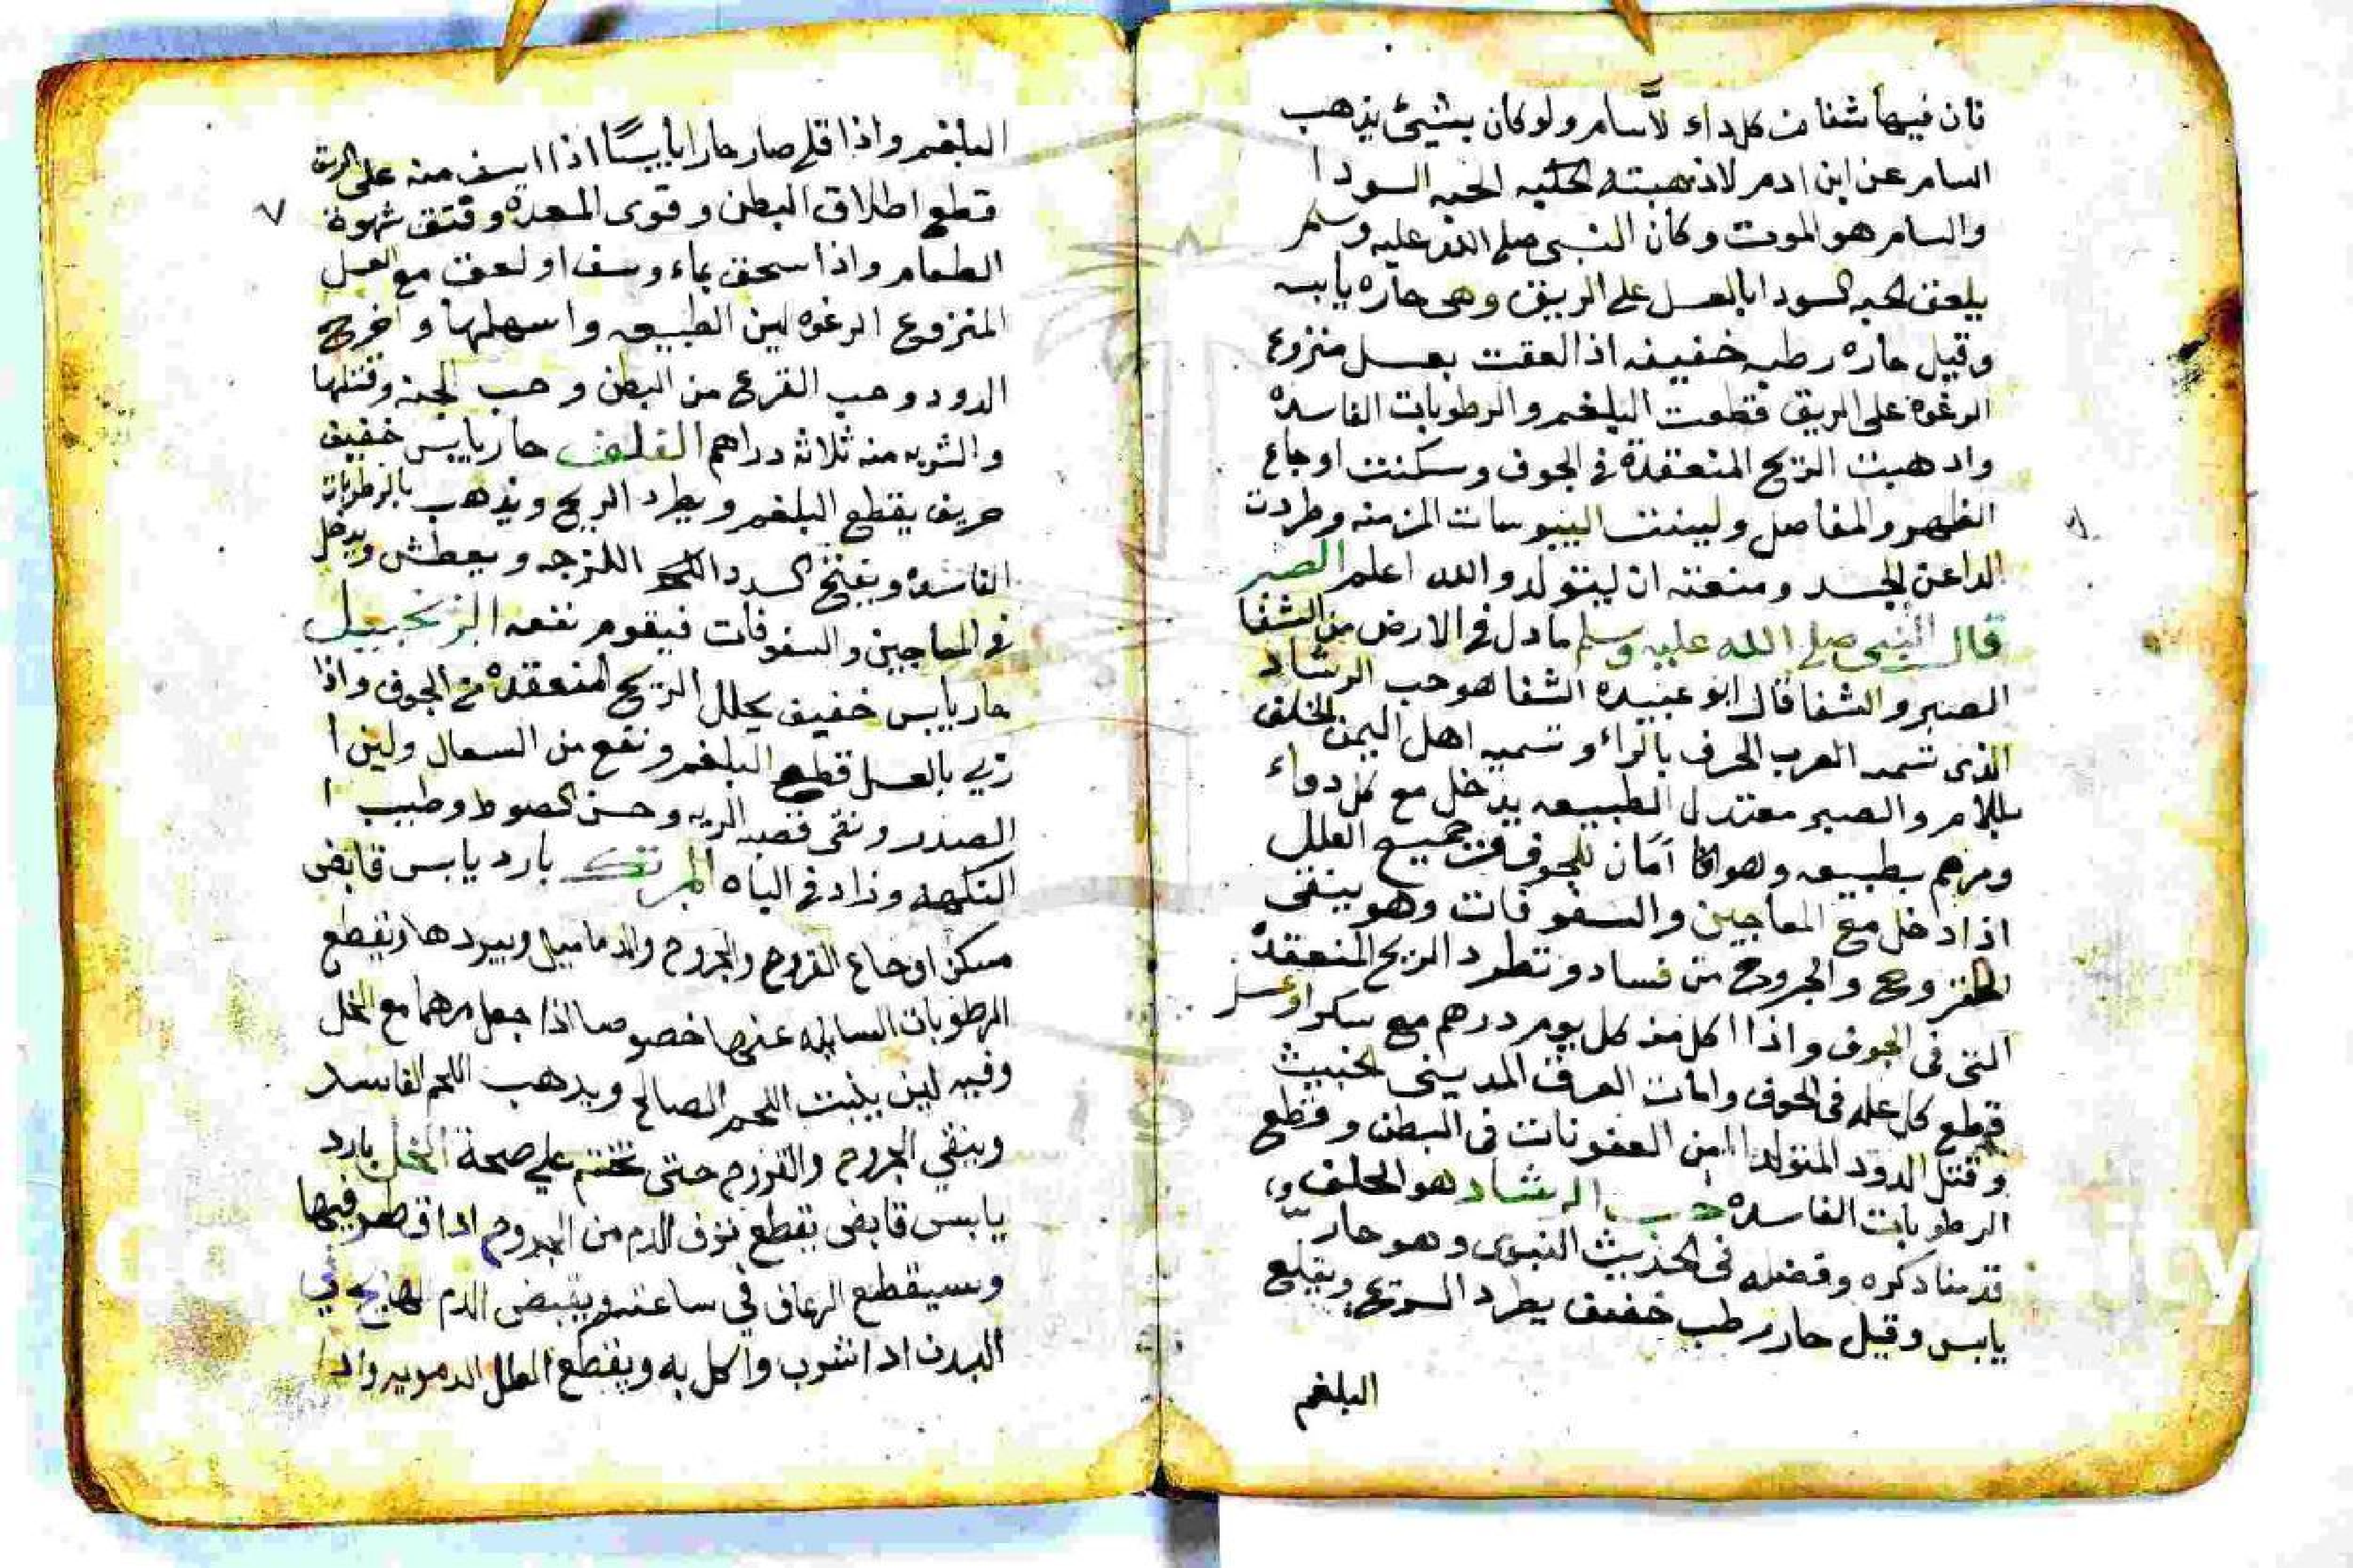 فان فيها شفا من كل داء لا سام ولو كان بشيئ يذهب
السام عن ابن ادم لاذهبته الحبه السودا
والسام هو الموت وكان النبي صلى الله عليه وسلم
يلعق الحبه السودا بالعسل على الريق وهي حاره يابسه
وقيل حاره رطبه خفيفه اذا لعقت بعسل منزوع
الرغوة على الريق قطعت البلغم والرطوبات الفاسده
واذهبت الريح المنعقدة في الجوف وسكنت اوجاع
الظهر والمفاصل ولينت اليبوسات المزمنه وطردت
الداعن الجسد ومنعته ان يتولد والله اعلم الصبر
قال النبي صلى الله عليه وسلم ما دل في الارض من الشفا
الصبر والشفا قال ابو عبيده الشفا هو حب الرشاد
الذي تسميه العرب الحرف بالراء وتسميه اهل اليمن الخلف
باللام والصبر معتدل الطبيعه يدخل مع كل دواء
ومرهم بطبيعه وهو امان للجوف من جميع العلل
اذا دخل مع المعاجين والسفوفات وهو ينقى
القروح والجروح من فساد وتطرد الريح المنعقدة
التى في الجوف واذا اكل منه كل يوم درهم مع سكر او عسل
قطع كل عله في الجوف وامات العرق المديني الخبيث
وقتل الدود المتولد من العفونات في البطن وقطع
الرطوبات الفاسده حب الرشاد هو الحلف و
قدمنا ذكره وفضله في الحديث النبوي وهو حار
يابس وقيل حار رطب خفيف يطرد الريح ويقلع
البلغم
البلغم واذا قلي صار حارا يابسًا اذا اسف منه على الريق
قطع اطلاق البطن وقوى المعدة وفتق شهوة
الطعام واذا سحق بماء وسف او لعق مع العسل
المنزوع الرغوه لين الطبيعه واسهلها واخرج
الدود وحب القرع من البطن وحب الجنه وقتلها
والشربه منه ثلاثة دراهم الفلفل حار يابس خفيف
حريف يقطع البلغم ويطرد الريح ويذهب بالرطوبات
الفاسده ويفتح السدد اللزجه ويعطش ويدخل
في المعاجين والسفوفات فيقوم نفعه الزنجبيل
حار يابس خفيف يحلل الريح المنعقدة في الجوف واذا
ربي بالعسل قطع البلغم ونفع من السعال ولين ا
الصدر ونقى قصبه الريه وحسن الصوط وطيب ا
النكهة وزاد في الباه المرتك بارد يابس قابض
مسكن اوجاع القروح والجروح والدماميل ويبردها ويقطع
الرطوبات السايله عنها خصوصا اذا جعل مرهما مع الخل
وفيه لين ينبت اللحم الصالح ويذهب اللحم الفاسد
وينقي الجروح والقروح حتى تختم على صحة الخل بارد
يابس قابض يقطع نزف الدم من الجروح اذا قطر فيها
وسيقطع الرعاف في ساعته ويقبض الدم الهايج في
البدن اذا شرب واكل به ويقطع العلل الدمويه واذا